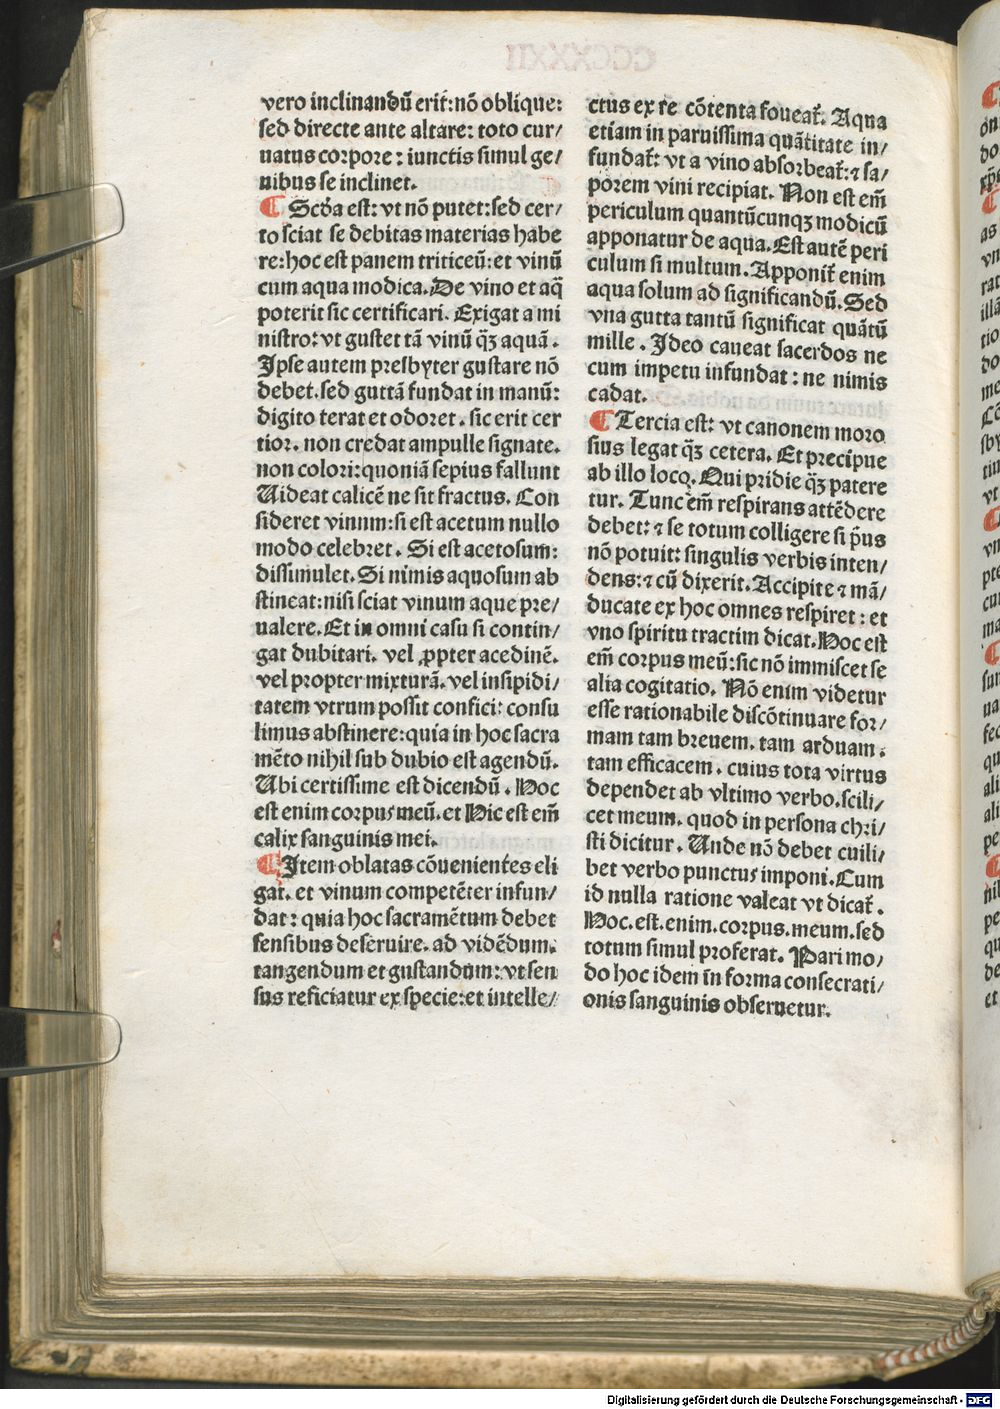 vero inclinandū erit: nō oblique:
sed directe ante altare: toto cur/
uatus corpore: iunctis simul ge/
nibus se inclinet.
¶ Scďa est: vt nō putet: sed cer/
to sciat se debitas materias habe
re: hoc est panem triticeū: et vinū
cum aqua modica. De vino et aq̄
poterit sic certificari. Exigat a mi
nistro: vt gustet tā vinū q̄ꝫ aquā.
Ipse autem presbyter gustare nō
debet. sed guttā fundat in manū:
digito terat et odoret. sic erit cer
tior. non credat ampulle signate.
non colori: quoniā sepius fallunt
Uideat calicē ne sit fractus. Con
sideret vinum: si est acetum nullo
modo celebret. Si est acetosum:
dissimulet. Si nimis aquosum ab
stineat: nisi sciat vinum aque pre/
ualere. Et in omni casu si contin/
gat dubitari. vel ꝓpter acedinē.
vel propter mixturā. vel insipidi/
tatem vtrum possit confici: consu
limus abstinere: quia in hoc sacra
mēto nihil sub dubio est agendū.
Ubi certissime est dicendū. Hoc
est enim corpus meū. et Hic est em̄
calix sanguinis mei.
¶ Item oblatas cōuenientes eli
gat. et vinum competēter infun/
dat: quia hoc sacramētum debet
sensibus deseruire. ad vidēdum.
tangendum et gustandum: vt sen
sus reficiatur ex specie: et intelle/
ctus ex re cōtenta foueat̄. Aqua
etiam in paruissima quātitate in/
fundat̄: vt a vino absorbeat̄: ⁊ sa/
porem vini recipiat. Non est em̄
periculum quantūcunqꝫ modicū
apponatur de aqua. Est autē peri
culum si multum. Apponit̄ enim
aqua solum ad significandū. Sed
vna gutta tantū significat quātū
mille. Ideo caueat sacerdos ne
cum impetu infundat: ne nimis
cadat.
¶ Tercia est: vt canonem moro
sius legat q̄ꝫ cetera. Et precipue
ab illo loco. Qui pridie q̄ꝫ patere
tur. Tunc em̄ respirans attēdere
debet: ⁊ se totum colligere si p̄us
nō potuit: singulis verbis inten/
dens: ⁊ cū dixerit. Accipite ⁊ mā/
ducate ex hoc omnes respiret: et
vno spiritu tractim dicat. Hoc est
em̄ corpus meū: sic nō immiscet se
alia cogitatio. Nō enim videtur
esse rationabile discōtinuare for/
mam tam breuem. tam arduam.
tam efficacem. cuius tota virtus
dependet ab vltimo verbo. scili/
cet meum. quod in persona chri/
sti dicitur. Unde nō debet cuili/
bet verbo punctus imponi. Cum
id nulla ratione valeat vt dicat̄.
Hoc. est. enim. corpus. meum. sed
totum simul proferat. Pari mo/
do hoc idem īn forma consecrati/
onis sanguinis obseruetur.
Digitalisierung gefördert durch die Deutsche Forschungsgemeinschaft - DFG